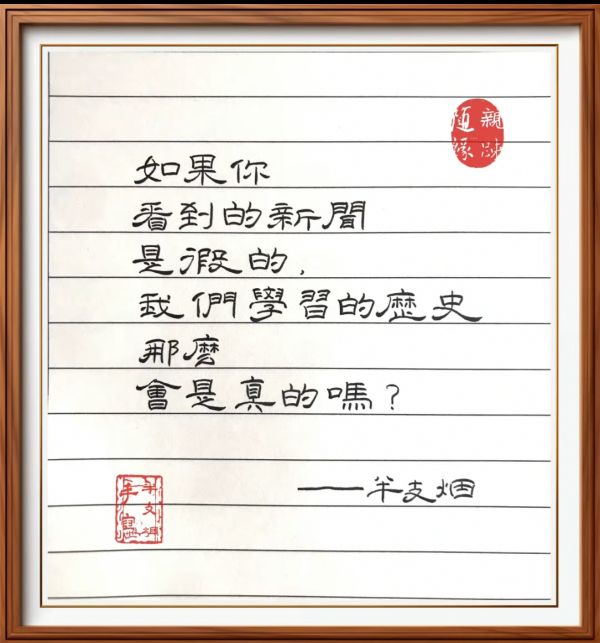 親疎
隨緣
如果你
看到的新聞
是假的，
我們學習的歷史
那麼
會是真的嗎？
——半支烟
半支烟
手寫